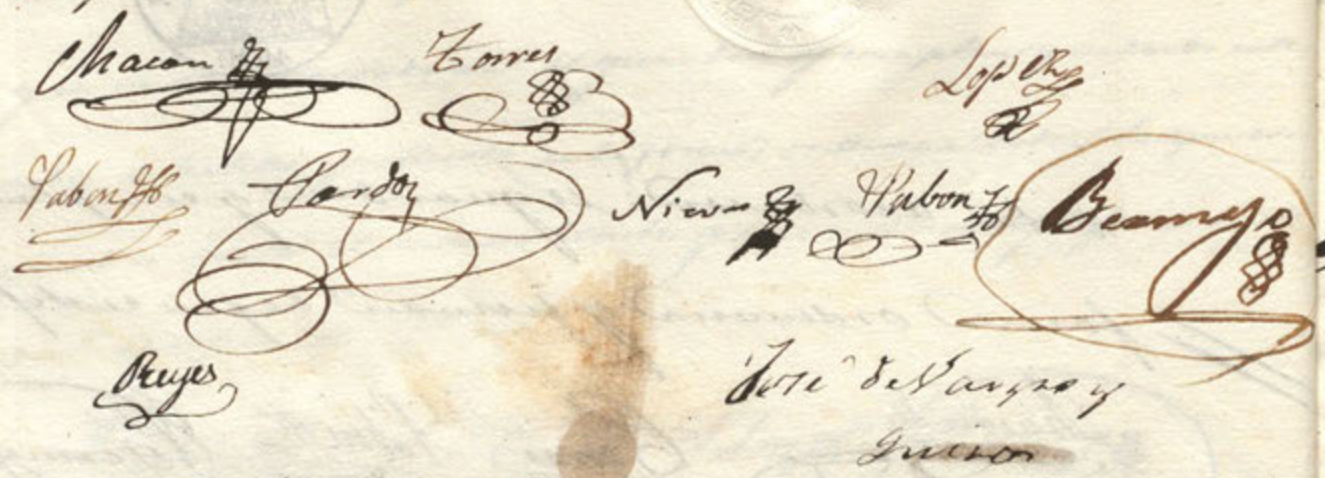 Chacon Torres Lopez
Pabon Pardo Nieves Pabon
Reyes
José de Vargas y